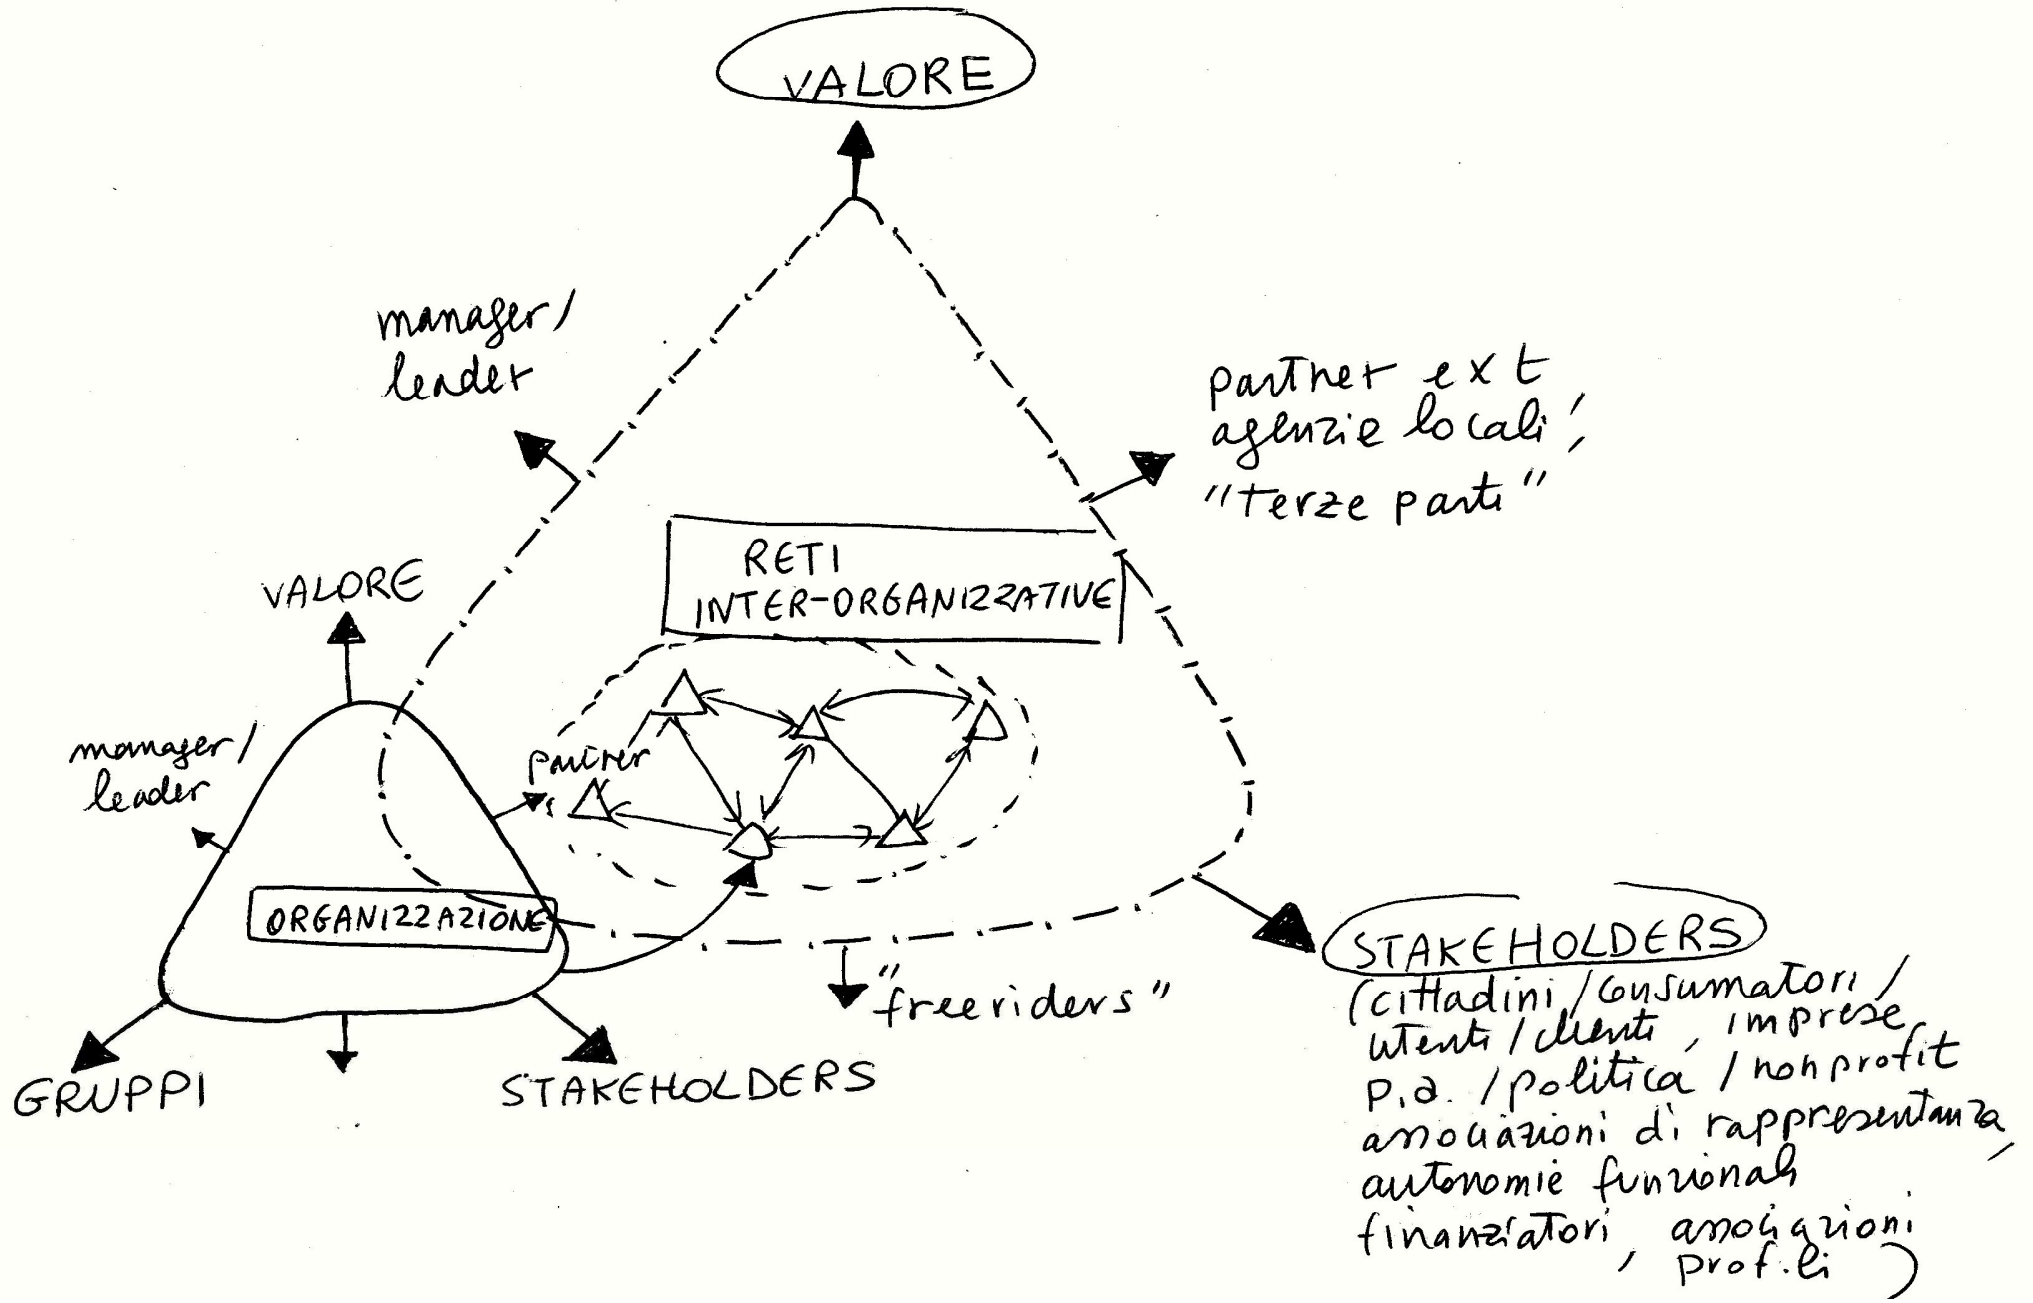 VALORE
manager/
leader
partner ext
agenzie locali,
"terze parti"
RETI
INTER-ORGANIZZATIVE
VALORE
manager/
leader
partner
ORGANIZZAZIONE
"freeriders"
GRUPPI
STAKEHOLDERS
STAKEHOLDERS
(cittadini/consumatori/
utenti/clienti, imprese
p.a./politica/nonprofit
associazioni di rappresentanza,
autonomie funzionali
finanziatori, associazioni
prof.li)